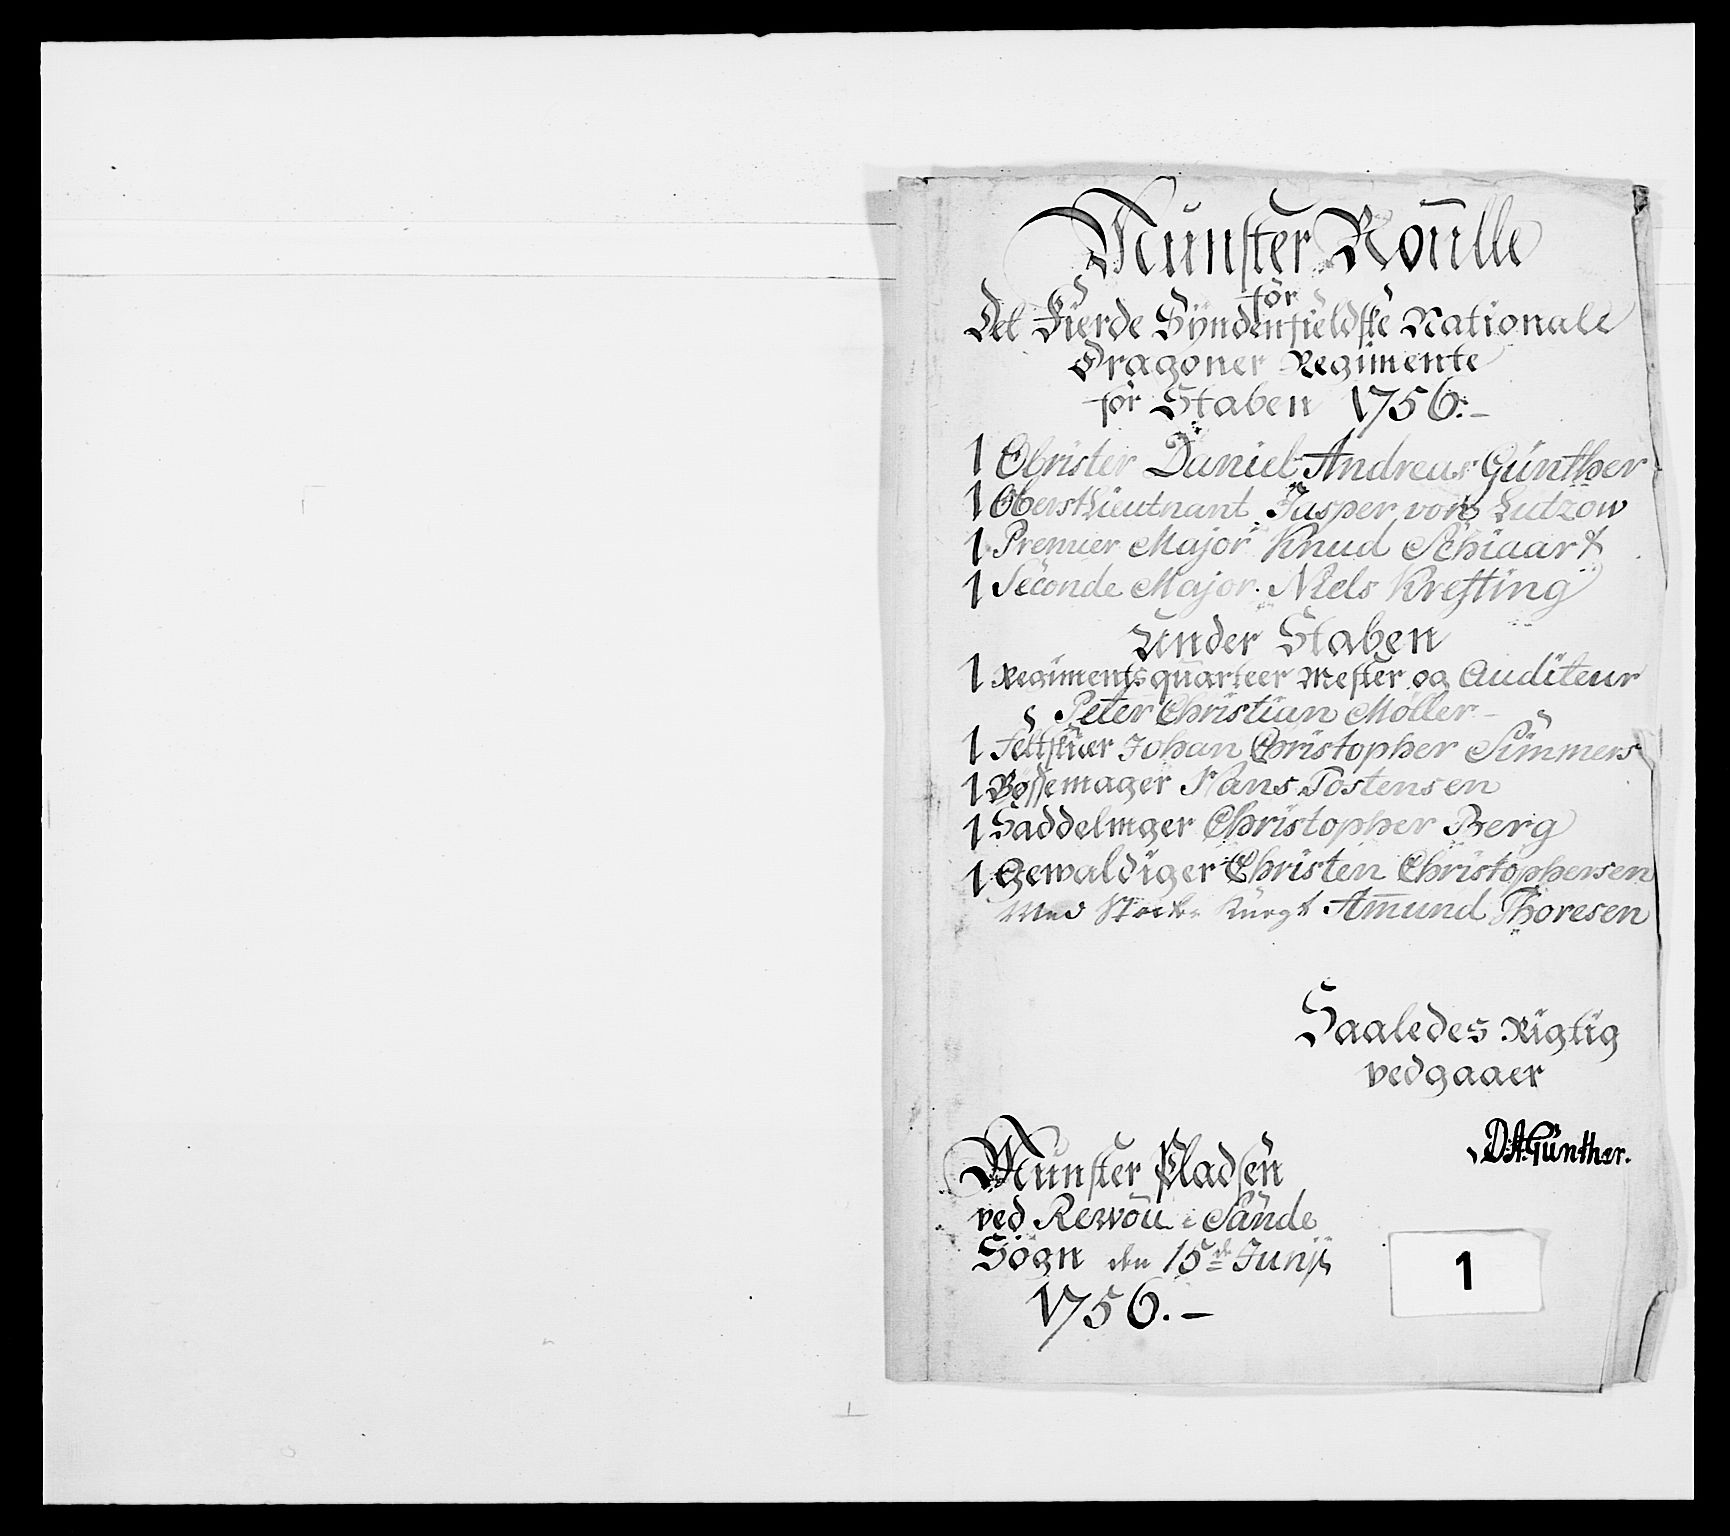 Munster Roulle
for
Det Fierde Syndenfieldske Nationale
Dragoner Regimente
for Staben 1756.-
1 Obrister Daniel Andreas Günther
1 OberstLieutnant Jasper von Lutzow
1 Premier Major Knud Schiaart
1 Seconde Major Niels Krefting
Under Staben
1 Regimentsquarteer Mester og Auditeur
Peter Christian Møller-
1 Feltskiær Johan Christopher Simmers
1 Bøssemager Hans Tostensen
1 Saddelmger Christopher Berg
1 Gewaldiger Christen Christophersen
Med Amund Thoresen
Saaledes Rigtig
vedgaaer
D:A:Günther.
Munster Pladsen
ved Rewou i Sande
Sogn den 15de Junij
1756.-
1